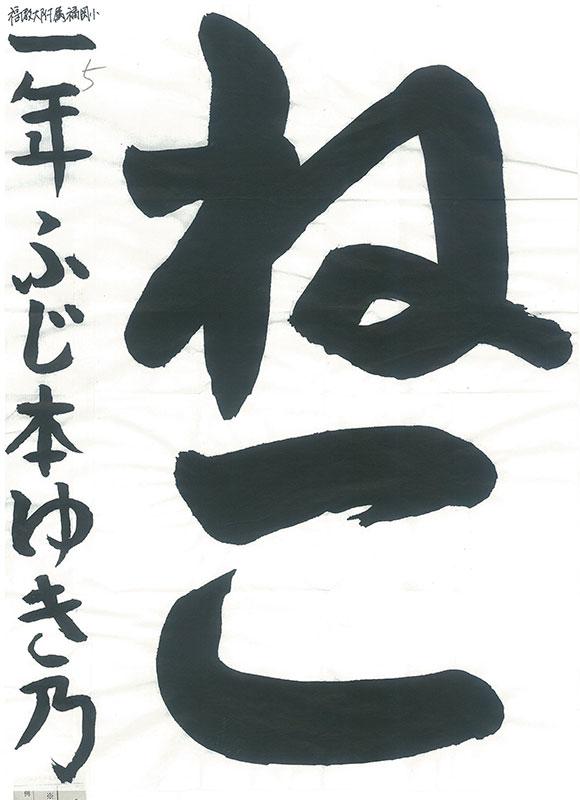 ねこ
福教大附属福岡小
一年 ふじ本ゆき乃
5
例 ※